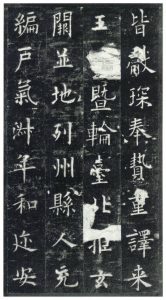 皆獻琛奉贄重譯來
王暨輪臺北拒玄
闕並地列州縣人充
編戶氣淑年和迩安